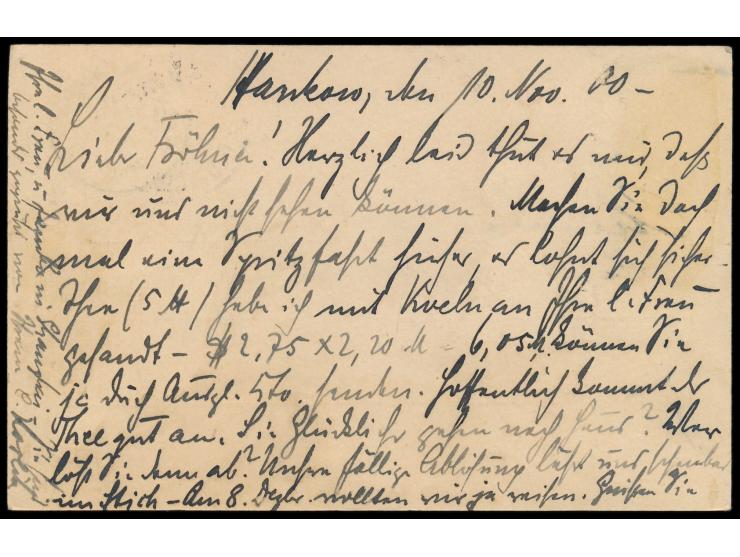 Hankow, den 10. Nov. 00 –
Liebe Fröhma! Herzlich leid thut es mir, daß
wir uns nicht sehen können. Machen Sie doch
mal eine Spritzfahrt hierher, es lohnt sich sicher.
Thee (5 ℔) habe ich mit Koeln an Ihre l. Frau
gesandt – $ 2,75 x 2,20 M = 6,05 M. können Sie
ja durch Ausgl. Kto. senden. Hoffentlich kommt der
Thee gut an. Sie Glücklicher gehen nach Haus? Wer
löst Sie denn ab? Unsere fällige Ablösung läßt uns scheinbar
im Stich – Am 8. Dezbr. wollten wir ja reisen. Grüßen Sie
Ihre l. Frau, u. in Shanghai. Sie sind
gegrüßt von Ihrem